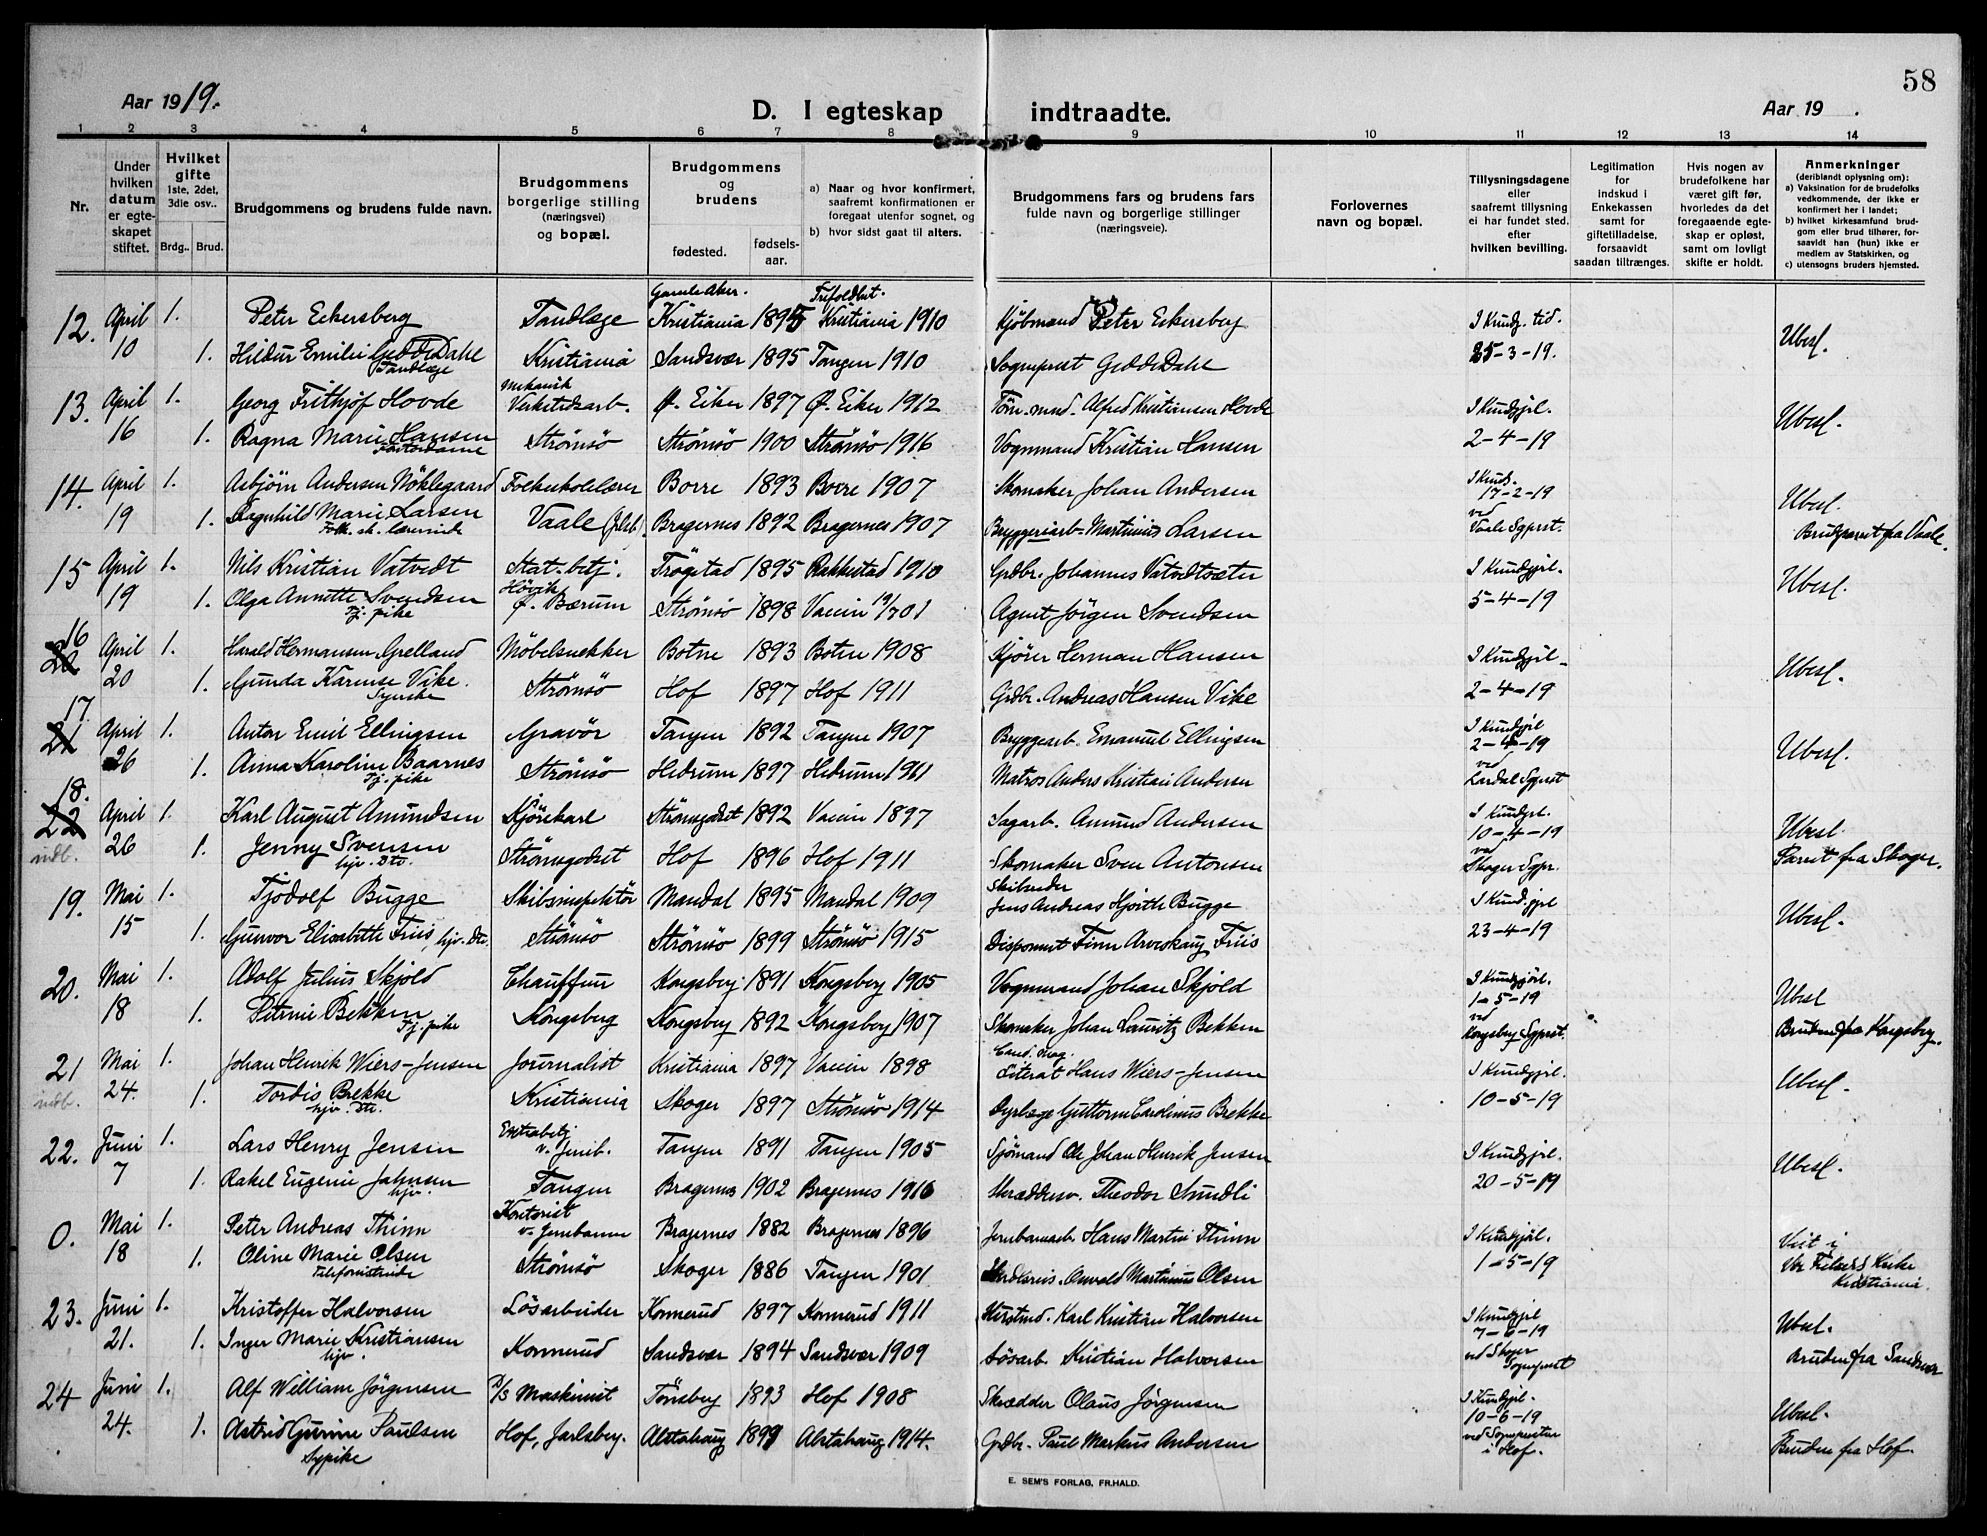 58
Aar 1919.
D. I egteskap indtraadte.
Aar 19 .
1 2 3 4 5 6 7 8 9 10 11 12 13 14
Nr.
Under hvilken datum er egteskapet stiftet.
Hvilket gifte 1ste, 2det, 3die osv..
Brdg.. Brud.
Brudgommens og brudens fulde navn.
Brudgommens borgerlige stilling (næringsvei) og bopæl.
Brudgommens og brudens
fødested. fødsels-aar.
a) Naar og hvor konfirmert, saafremt konfirmationen er foregaat utenfor sognet, og
b) hvor sidst gaat til alters.
Brudgommens fars og brudens fars fulde navn og borgerlige stillinger (næringsveie).
Forlovernes navn og bopæl.
Tillysningsdagene eller saafremt tillysning ei har fundet sted. efter hvilken bevilling.
Legitimation for indskud i Enkekassen samt for giftetilladelse, forsaavidt saadan tiltrænges.
Hvis nogen av brudefolkene har været gift før, hvorledes da det foregaaende egteskap er opløst, samt om lovligt skifte er holdt.
Anmerkninger (deriblandt oplysning om):
a) Vaksination for de brudefolks vedkommende, der ikke er konfirmert her i landet;
b) hvilket kirkesamfund brudgom eller brud tilhører, forsaavidt han (hun) ikke er medlem av Statskirken, og
c) utensogns bruders hjemsted.
Gamle Aker. Trefoldht.
12. April 1. Peter Eckersberg Tandlæge Kristiania 1895 Kristiania 1910 Kjöbmand Peter Eckersberg I Kundg. tid. Ubesl.
10 1. Hildur Emilie Gedde Dahl Kristiania Sandsvær 1895 Tangen 1910 Sogneprest Gedde Dahl 25-3-19.
Tandlæge
13. April 1. Georg Frithjof Hovde Mekanik Verkstedsarb. Ø. Eiker 1897 Ø. Eiker 1912 Töm.mand. Alfred Kristiansen Hovde I Kundgjæl. Ubesl.
16 1. Ragna Marie Hansen Strömsö Strömsö 1900 Strömsö 1916 Vognmand Kristian Hansen 2-4-19
Kontordame
14. April 1. Asbjörn Andersen Nöklegaard Folkeskolelærer Borre 1893 Borre 1907 Skomaker Johan Andersen I Kund. 17-2-19 Ubesl.
19 1. Ragnhild Marie Larsen Vaale (Jrlsb.) Bragernes 1892 Bragernes 1907 Bryggeriarb. Martinius Larsen ved Vaale Sgprst. Brudeparret fra Vaale.
Folk. sk. lærerinde
15 April 1. Nils Kristian Vatvedt Stat.betj. Trögstad 1895 Rakkestad 1910 Grdbr. Johannes Vatvedtsæter I Kundgjæl. Ubesl.
19 1. Olga Annette Svendsen Hövik Ø. Bærum Strömsö 1898 Agent Jörgen Svendsen 5-4-19
Tj. pike
16 20 April 1. Harald Hermansen Grelland Möbelsnekker Botne 1893 Botne 1908 Kjörer Herman Hansen I Kundgjæl. Ubesl.
20 1. Gunda Karense Vike. Strömsö Hof 1897 Hof 1911 Grdbr. Andreas Hansen Vike 2-4-19
Syerske
17 21 April 1. Anton Emil Ellingsen Gravör Tangen 1892 Tangen 1907 Bryggearb. Emanuel Ellingsen I Kundgjæl 2-4-19 Ubesl.
26 1. Anna Karoline Baarnes Strömsö Hedrum 1897 Hedrum 1911 Matros Anders Kristian Andersen ved Lardal Sgprst
Tj. pike
18. 22 April 1. Karl August Amundsen Kjörekarl Strömsgodset 1892 Vaccin 1897 Sagarb. Amund Andersen I Kundgæl. 10-4-19 Ubesl.
indb. 26 1. Jenny Svensen Strömsgodset Hof 1896 Hof 1911 Skomaker Sven Antonsen ved Skoger Sgpr. Parret fra Skoger.
hjv. Dtr.
19. Mai 1. Tjodolf Bugge Skibsinspektör Mandal 1895 Mandal 1909 Skibsreder Jens Andreas Hjorth Bugge I Kundgjæl Ubesl.
15 1. Gunvor Elisabeth Friis, hjv. Dtr. Strömsö Strömsö 1899 Strömsö 1915 Disponent Finn Friis 23-4-19
20. Mai 1. Adolf Julius Skjold Chauffeur Kongsberg 1891 Kongsberg 1905 Vognmand Johan Skjold I Kundgjæl. 1-5-19 Ubesl
18 1. Petrine Bekken Kongsberg Kongsberg 1892 Kongsberg 1907 Skomaker Johan Lauritz Bekken ved Kongsberg Sgprst. Bruden fra Kongsberg.
Tj. pike
21 Mai 1. Johan Henrik Wiers-Jensen Journalist Kristiania 1897 Vaccin 1898 Cand. mag. Literat Hans Wiers-Jensen I Kundgjæl. Ubesl.
indb. 24. 1. Tordis Brekke Kristiania Skoger 1897 Strömsö 1914 Dyrlæge Guttorm Carolinus Brekke 10-5-19
hjv. Dtr.
22. Juni 1. Lars Henry Jensen Extrabetj. v. Jernb. Tangen 1891 Tangen 1905 Sjömand Ole Johan Henrik Jensen I Kundgjæl. Ubesl.
7 1. Rakel Eugenie Jahnsen Tangen Bragernes 1902 Bragernes 1916 Skræddersv. Theodor Sundli 20-5-19
hjv.
0. Mai 1. Peter Andreas Thinn Kontorist v. Jernbanen Bragernes 1882 Bragernes 1896 Jernbanearb. Hans Martin Thinn I Kundgjæl. Viet i
18 1. Oline Marie Olsen Strömsö Skoger 1886 Tangen 1901 Martinius Olsen 1-5-19 Vor Frelsers Kirke Kristiania.
Telefonistinde
23. Juni 1. Kristoffer Halvorsen Lösarbeider Konnerud 1897 Konnerud 1911 Karl Kristian Halvorsen I Kundgjæl 7-6-19 Ubesl.
21. 1. Inger Marie Kristiansen Konnerud Sandsvær 1894 Sandsvær 1909 Lösarb. Kristian Halvorsen ved Skoger Sogneprest Bruden fra Sandsvær
hjv.
24 Juni 1. Alf William Jörgensen D/S Maskinist Tönsberg 1893 Hof 1908 Skrædder Olaus Jörgensen I Kundgjæl. 10-6-19 Ubesl.
24. 1. Astrid Gurine Paulsen Hof, Jarlsberg. Alstahaug 1899 Alstahaug 1914. Grdbr. Paul Markus Andersen ved Sognepresten i Hof. Bruden fra Hof.
Sypike
E. SEM'S FORLAG, FR.HALD.